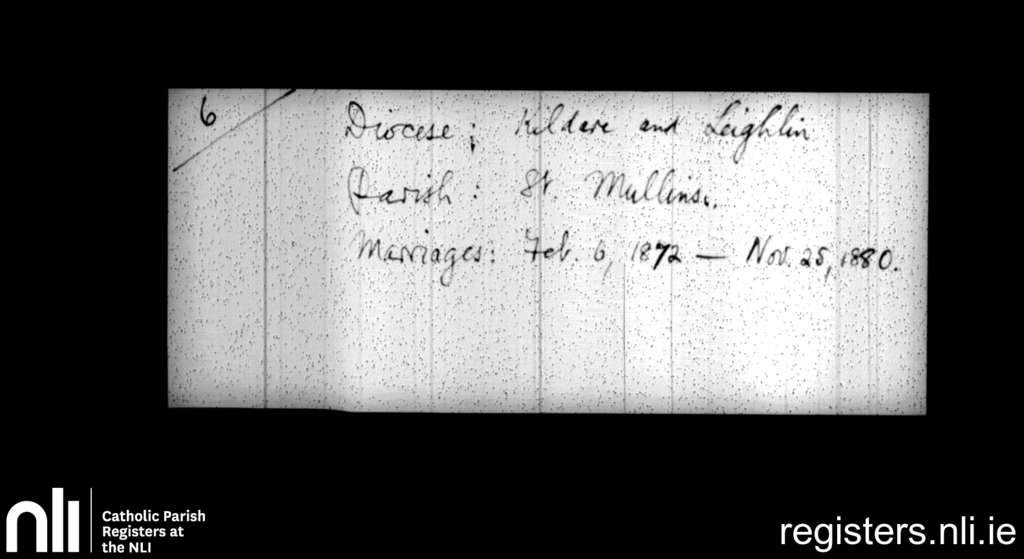 6
Diocese: Kildare and Leighlin
Parish: St. Mullins.
Marriages: Feb. 6, 1872 — Nov. 25, 1880.
nli
Catholic Parish
Registers at
the NLI
registers.nli.ie